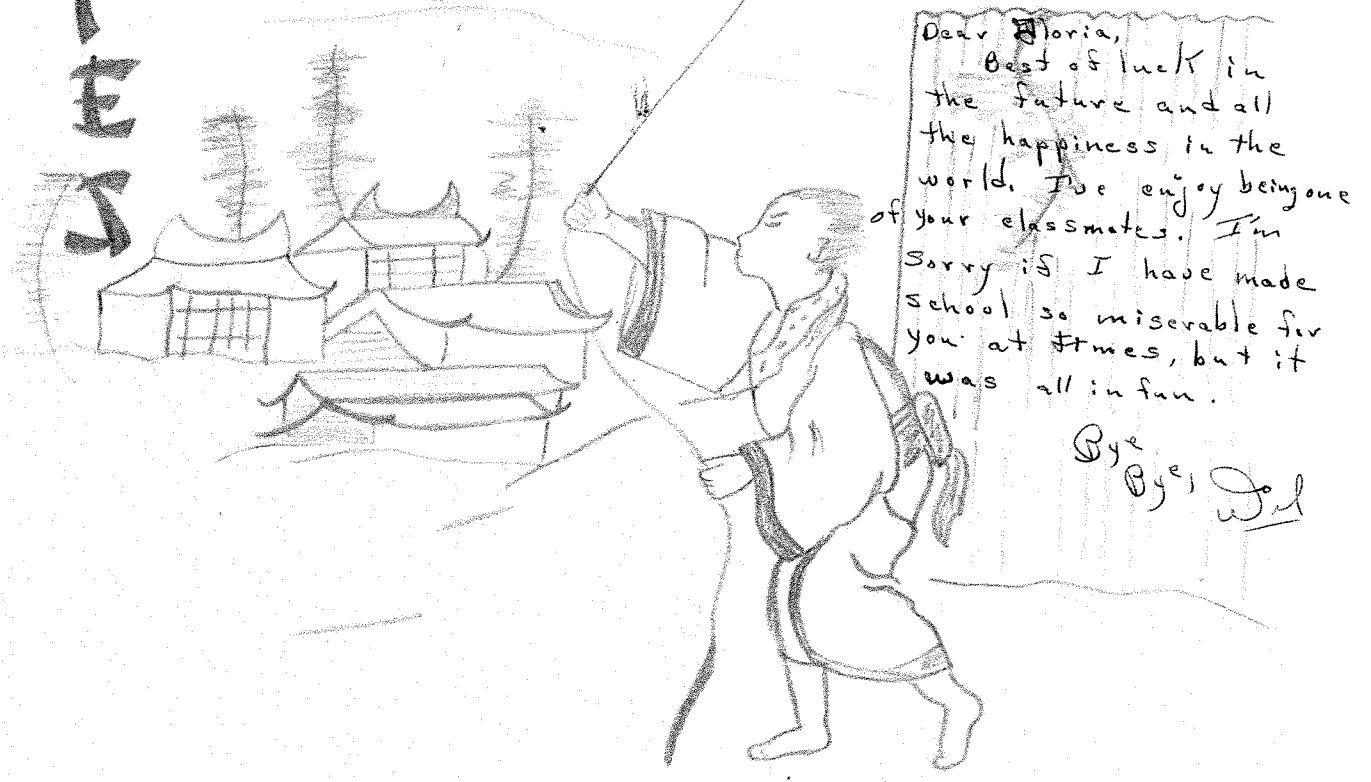 Dear Gloria,
Best of luck in
the future and all
the happiness in the
world. I've enjoy being one
of your classmates. I'm
Sorry if I have made
school so miserable for
you at times, but it
was all in fun.
Bye
Bye,